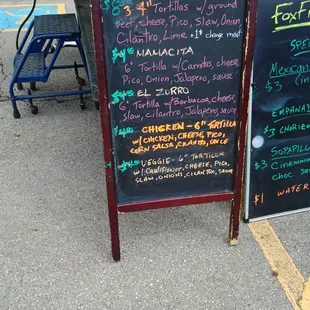 $8 3- 4" Tortillas w/ ground
beef, cheese, Pico, Slaw, Onion
Cilantro, Lime +1$ change meat
$4 MAMACITA
6" Tortilla w/ Carnitas, cheese
Pico, Onion, Jalapeno, sauce
$4 EL ZORRO
6" Tortilla w/Barbacoa, cheese,
slaw, cilantro, Jalapeno, sauce
$4 CHICKEN - 6" TORTILLA
w/ CHICKEN, CHEESE, PICO,
CORN SALSA, CILANTRO, SAUCE
$4 VEGGIE - 6" TORTILLA
w/ CAULIFLOWER, CHEESE, PICO,
SLAW, ONIONS, CILANTRO, SAUCE
FoxFr
SPE
Mexican
$3
EMPANA
$3 CHORIZO
SOPAPILL
$3 Cinnamon
choc. sa
$1 WATER